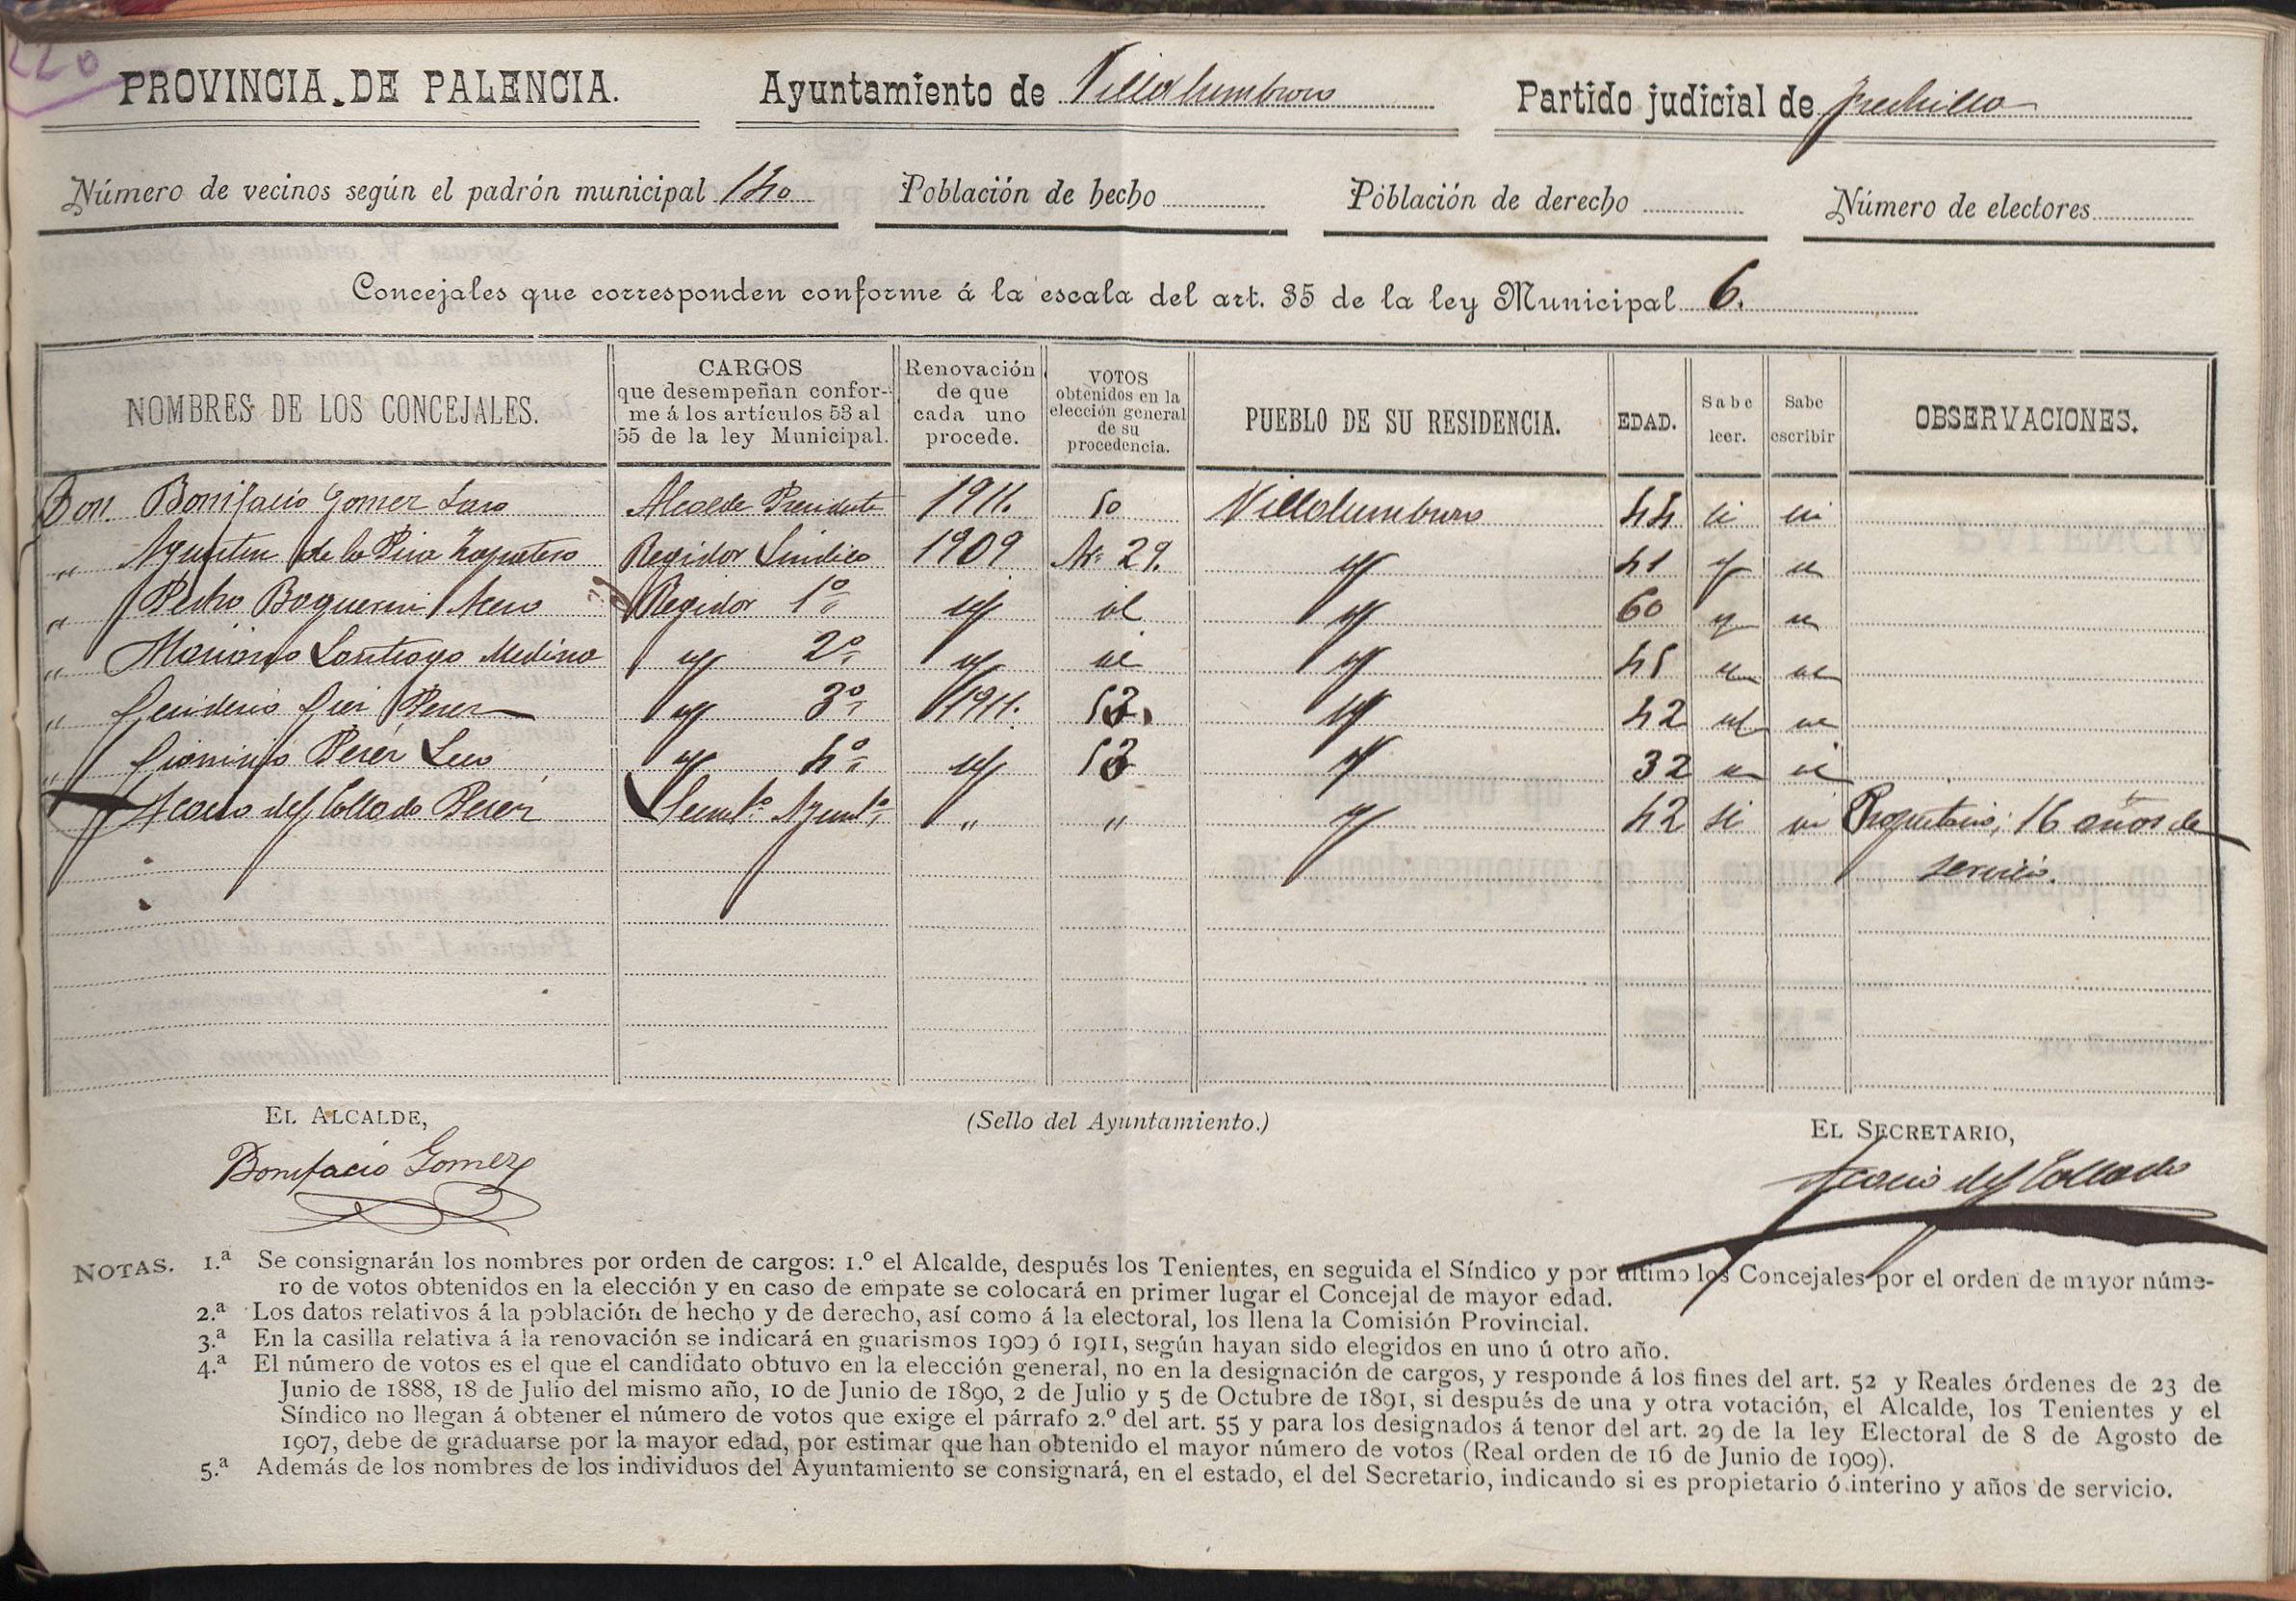 220
PROVINCIA DE PALENCIA. Ayuntamiento de Villalumbroso Partido judicial de Frechilla
Número de vecinos según el padrón municipal 140 Población de hecho Población de derecho Número de electores
Concejales que corresponden conforme á la escala del art. 35 de la ley Municipal 6.
NOMBRES DE LOS CONCEJALES. CARGOS que desempeñan conforme á los artículos 53 al 55 de la ley Municipal. Renovación de que cada uno procede. VOTOS obtenidos en la elección general de su procedencia. PUEBLO DE SU RESIDENCIA. EDAD. Sabe leer. Sabe escribir OBSERVACIONES.
Don Bonifacio Gomez Laso Alcalde Presidente 1911. 50 Villalumbroso 44 si si
" Agustin de la Pina Zapatero Regidor Sindico 1909 Ar. 29. id 41 id id
" Pedro Boquerin Regidor 1º id id id 60 id id
" Mariano Santiago Medina id 2º id id id 45 id id
" Desiderio Perez id 3º 1911. 53. id 42 id id
" Dionisio Perez id 4º id 53 id 32 id id
" Acacio del Collado Perez Secretº Ayuntº " " id 42 si si Propietario; 16 años de
servicio.
EL ALCALDE, (Sello del Ayuntamiento.) EL SECRETARIO,
Bonifacio Gomez Acacio del Collado
NOTAS. 1.ª Se consignarán los nombres por orden de cargos: 1.º el Alcalde, después los Tenientes, en seguida el Síndico y por último los Concejales por el orden de mayor núme-
ro de votos obtenidos en la elección y en caso de empate se colocará en primer lugar el Concejal de mayor edad.
2.ª Los datos relativos á la población de hecho y de derecho, así como á la electoral, los llena la Comisión Provincial.
3.ª En la casilla relativa á la renovación se indicará en guarismos 1909 ó 1911, según hayan sido elegidos en uno ú otro año.
4.ª El número de votos es el que el candidato obtuvo en la elección general, no en la designación de cargos, y responde á los fines del art. 52 y Reales órdenes de 23 de
Junio de 1888, 18 de Julio del mismo año, 10 de Junio de 1890, 2 de Julio y 5 de Octubre de 1891, si después de una y otra votación, el Alcalde, los Tenientes y el
Síndico no llegan á obtener el número de votos que exige el párrafo 2.º del art. 55 y para los designados á tenor del art. 29 de la ley Electoral de 8 de Agosto de
1907, debe de graduarse por la mayor edad, por estimar que han obtenido el mayor número de votos (Real orden de 16 de Junio de 1909).
5.ª Además de los nombres de los individuos del Ayuntamiento se consignará, en el estado, el del Secretario, indicando si es propietario ó interino y años de servicio.